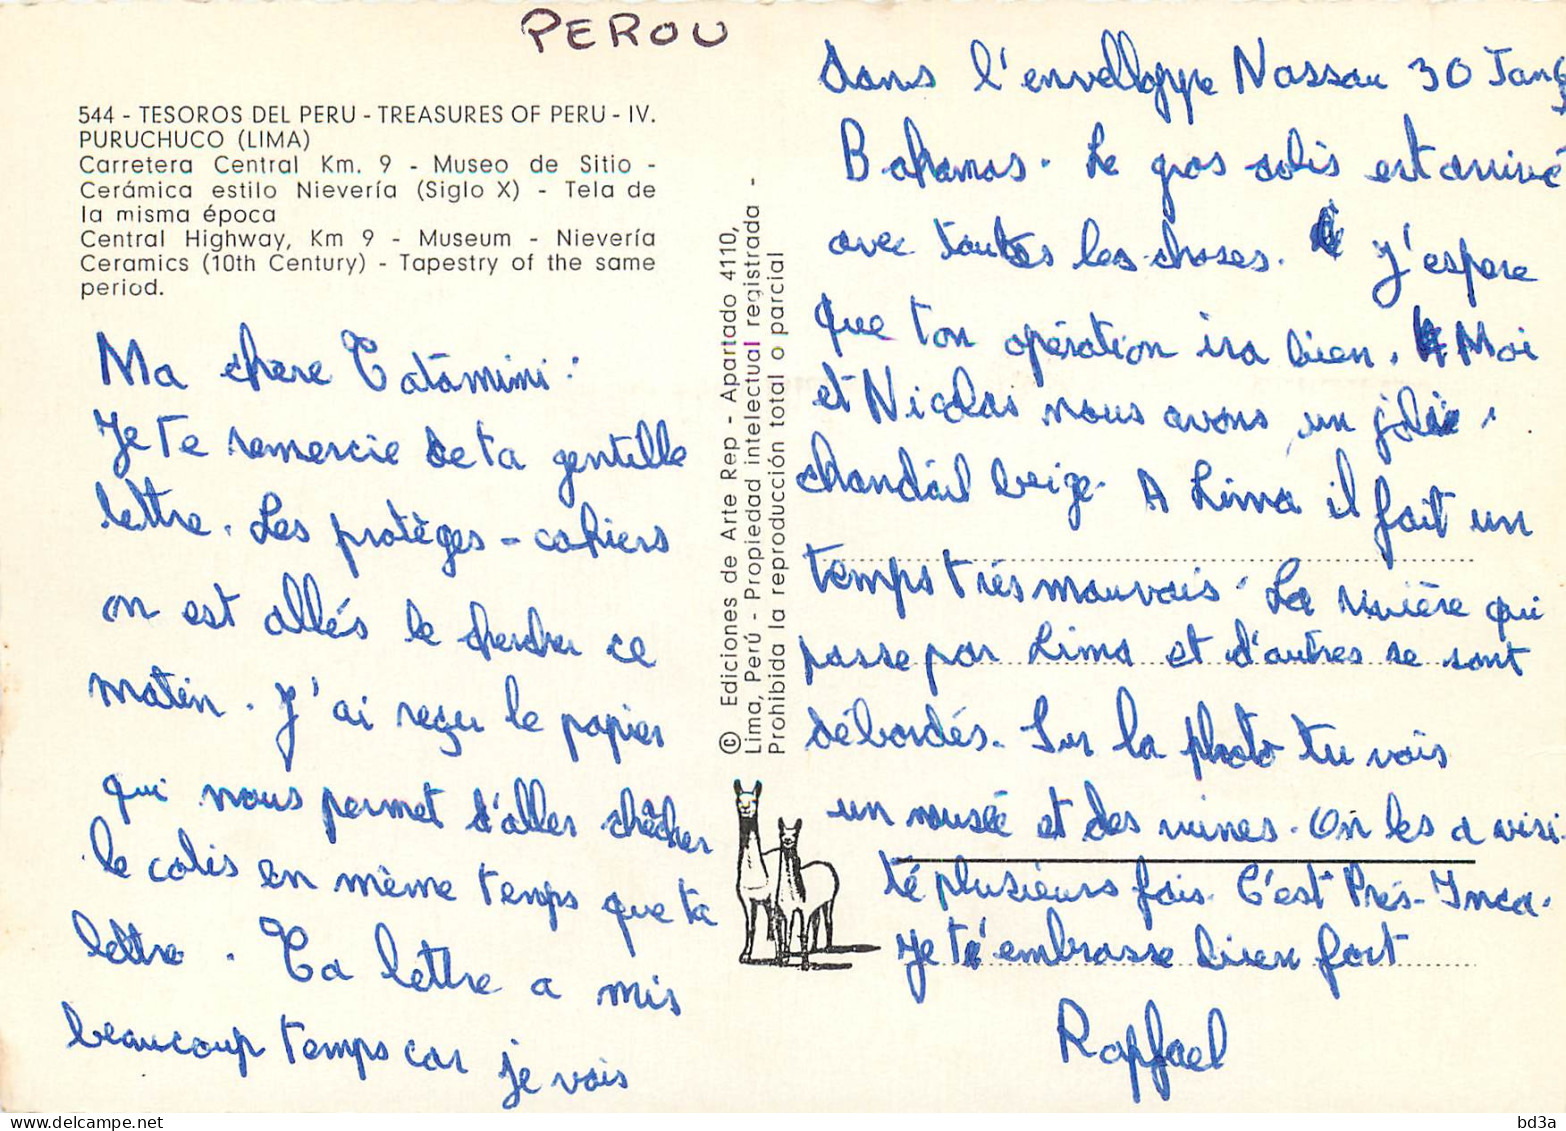 PEROU
544 - TESOROS DEL PERU - TREASURES OF PERU - IV.
PURUCHUCO (LIMA)
Carretera Central Km. 9 - Museo de Sitio -
Cerámica estilo Nievería (Siglo X) - Tela de
la misma época
Central Highway, Km 9 - Museum - Nievería
Ceramics (10th Century) - Tapestry of the same
period.
Ma chere Tatamini :
Je te remercie de ta gentille
lettre. Les protèges-cahiers
on est allés le chercher ce
matin. J'ai reçu le papier
qui nous permet d'aller chercher
le colis en même temps que ta
lettre. Ta lettre a mis
beaucoup temps car je vois
© Ediciones de Arte Rep - Apartado 4110,
Lima, Perú - Propiedad intelectual registrada -
Prohibida la reproducción total o parcial
dans l'envelloppe Nassau 30 Jan
Bahamas. Le gros colis est arrivé
avec toutes les choses. J'espere
que ton opération ira bien. Moi
et Nicolas nous avons un joli
chandail beige. A Lima il fait un
temps trés mauvais. La rivière qui
passe par Lima et d'autres se sont
débordés. Sur la photo tu vois
un musée et des ruines. On les a visi
té plusieurs fois. C'est Prés-Inca.
Je t'embrasse bien fort
Raphael
bd3a